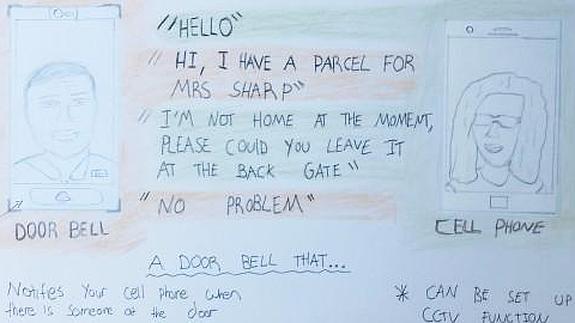 "HELLO"
"HI, I HAVE A PARCEL FOR
MRS SHARP"
"I'M NOT HOME AT THE MOMENT,
PLEASE COULD YOU LEAVE IT
AT THE BACK GATE"
"NO PROBLEM"
DOOR BELL
CELL PHONE
A DOOR BELL THAT...
Notifies Your cell phone when
there is someone at the door
* CAN BE SET UP
CCTV FUNCTION